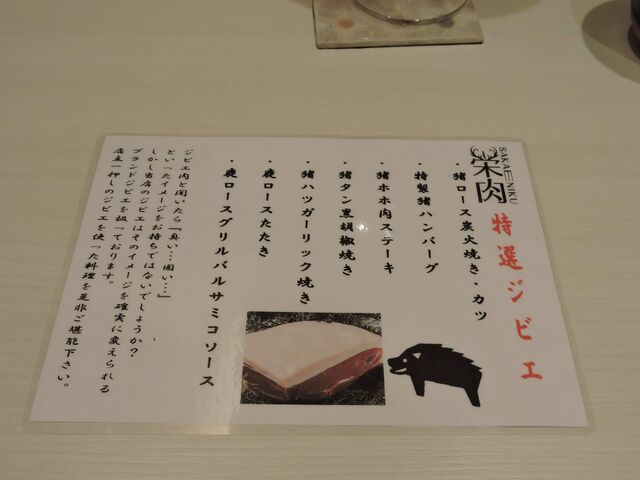 栄肉
SAKAE NIKU
特選ジビエ
・猪ロース炭火焼き・カツ
・特製猪ハンバーグ
・猪ホホ肉ステーキ
・猪タン黒胡椒焼き
・猪ハツガーリック焼き
・鹿ロースたたき
・鹿ロースグリルバルサミコソース
ジビエ肉と聞いたら『臭い…固い…』
といったイメージをお持ちではないでしょうか？
しかし当店のジビエはそのイメージを確実に変えられる
ブランドジビエを扱っております。
店主一押しのジビエを使った料理を是非ご堪能下さい。